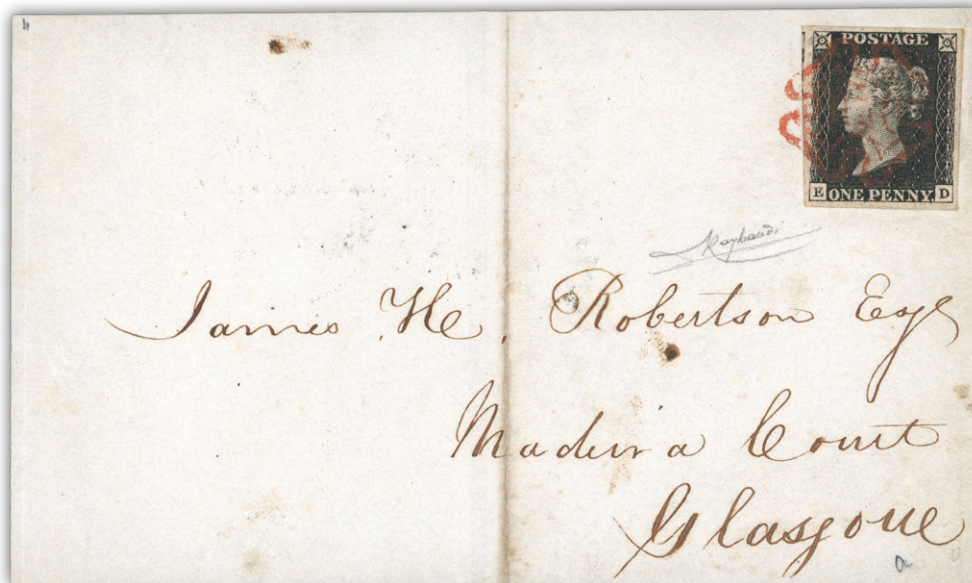 POSTAGE
E ONE PENNY D
James H. Robertson Esq
Madeira Court
Glasgow
a